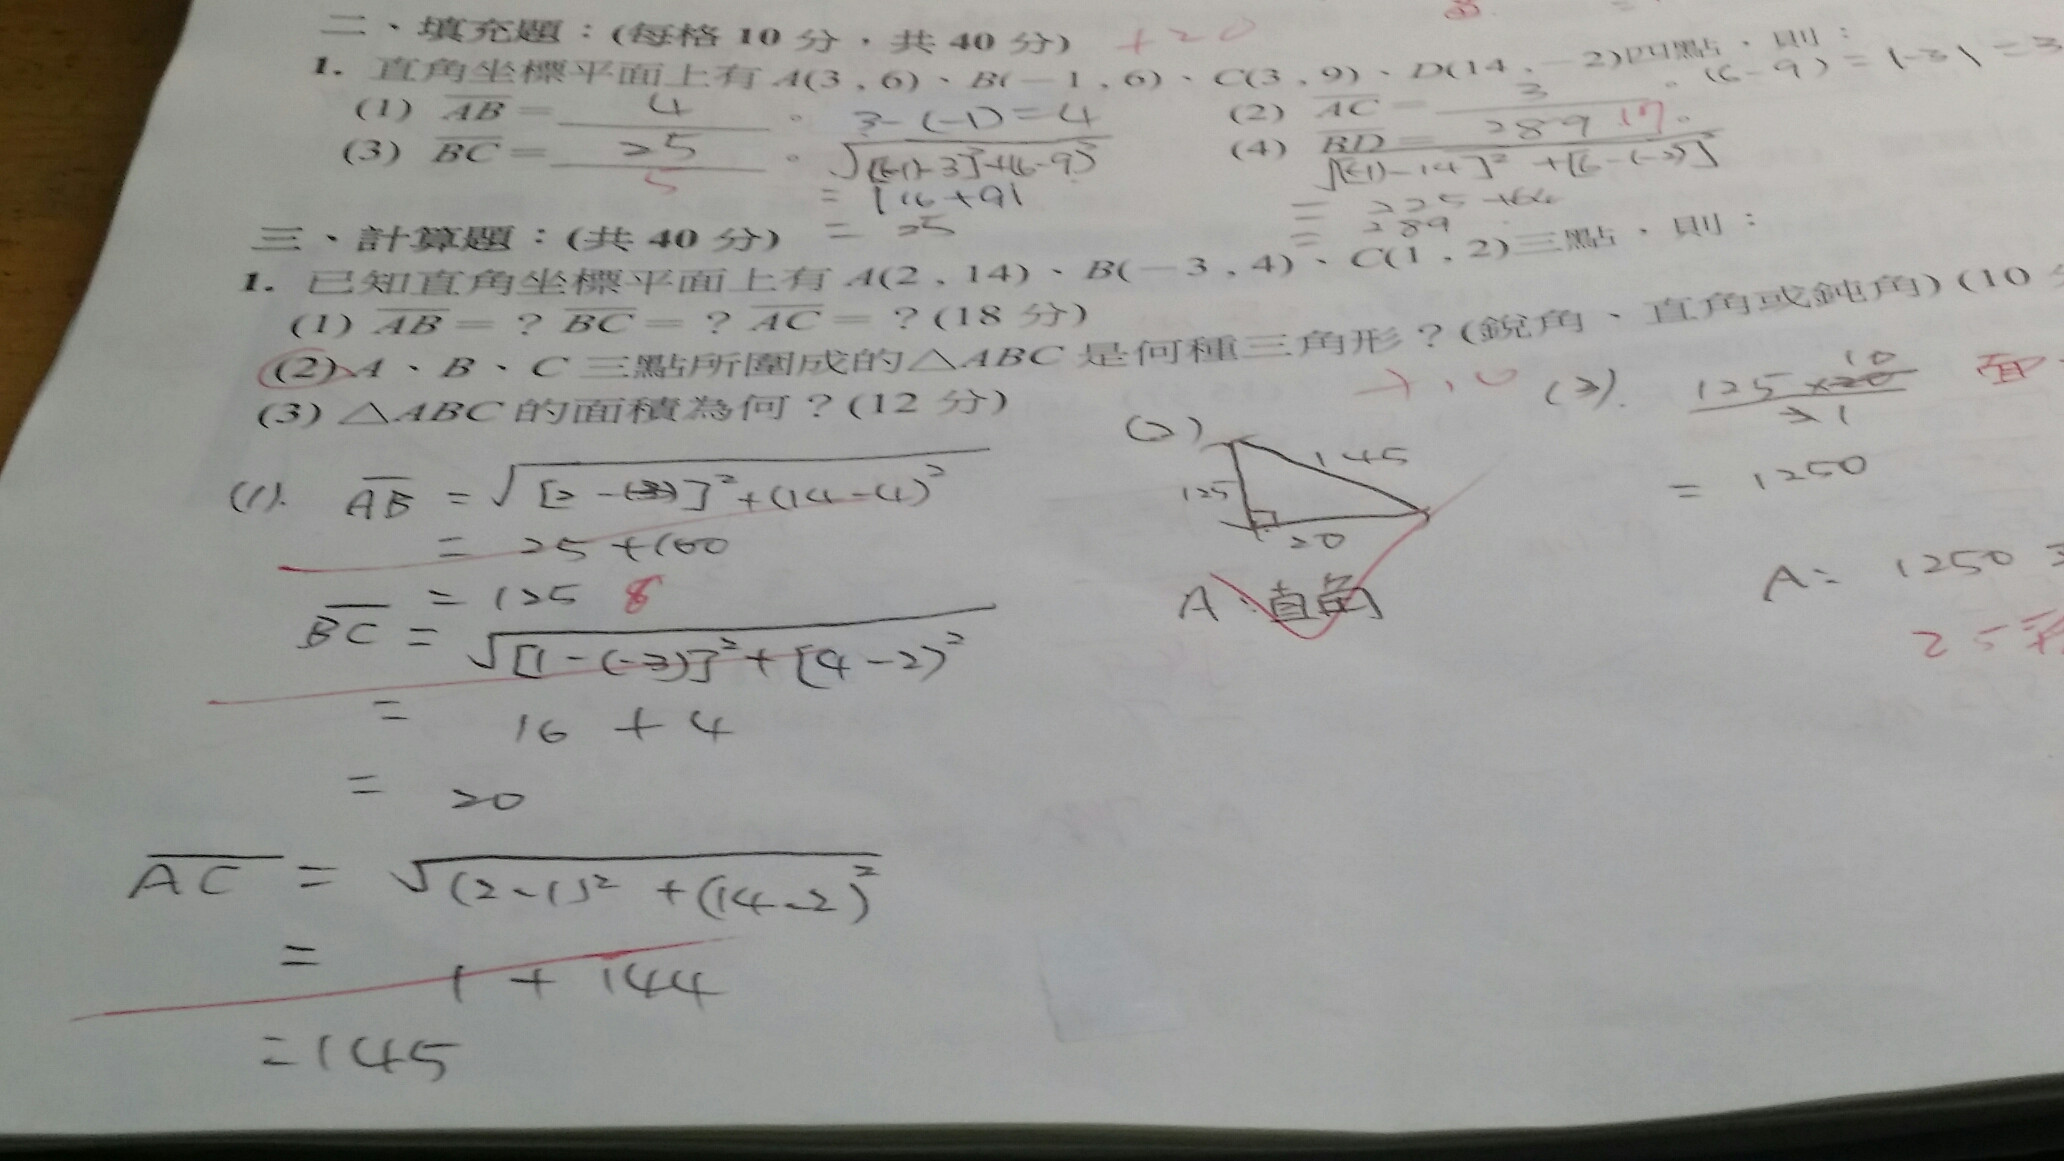 二、填充題：(每格 10 分，共 40 分) +20
1. 直角坐標平面上有 A(3 , 6)、B(－1 , 6)、C(3 , 9)、D(14 , －2)四點，則：
(1) AB = 4 。 3-(-1)=4 (2) AC = 3 。 (6-9)=|-3|=3
(3) BC = 25 。 √[(-1)-3]²+(6-9)² (4) BD = 289 17。
5 = |16+9| √[(-1)-14]²+[6-(-2)]²
= 25 = 225+64
= 289
三、計算題：(共 40 分)
1. 已知直角坐標平面上有 A(2 , 14)、B(－3 , 4)、C(1 , 2)三點，則：
(1) AB = ? BC = ? AC = ? (18 分)
(2) A、B、C 三點所圍成的△ABC 是何種三角形？(銳角、直角或鈍角) (10
(3) △ABC 的面積為何？(12 分)
+10
(1). AB = √[2-(-3)]²+(14-4)²
= 25+100
= 125 8
BC = √[1-(-3)]²+[4-2)²
= 16 + 4
= 20
AC = √(2-1)²+(14-2)²
= 1 + 144
=145
(2)
145
125
20
A：直角
(3). 125×20 10
2 1
面
= 1250
A： 1250
25